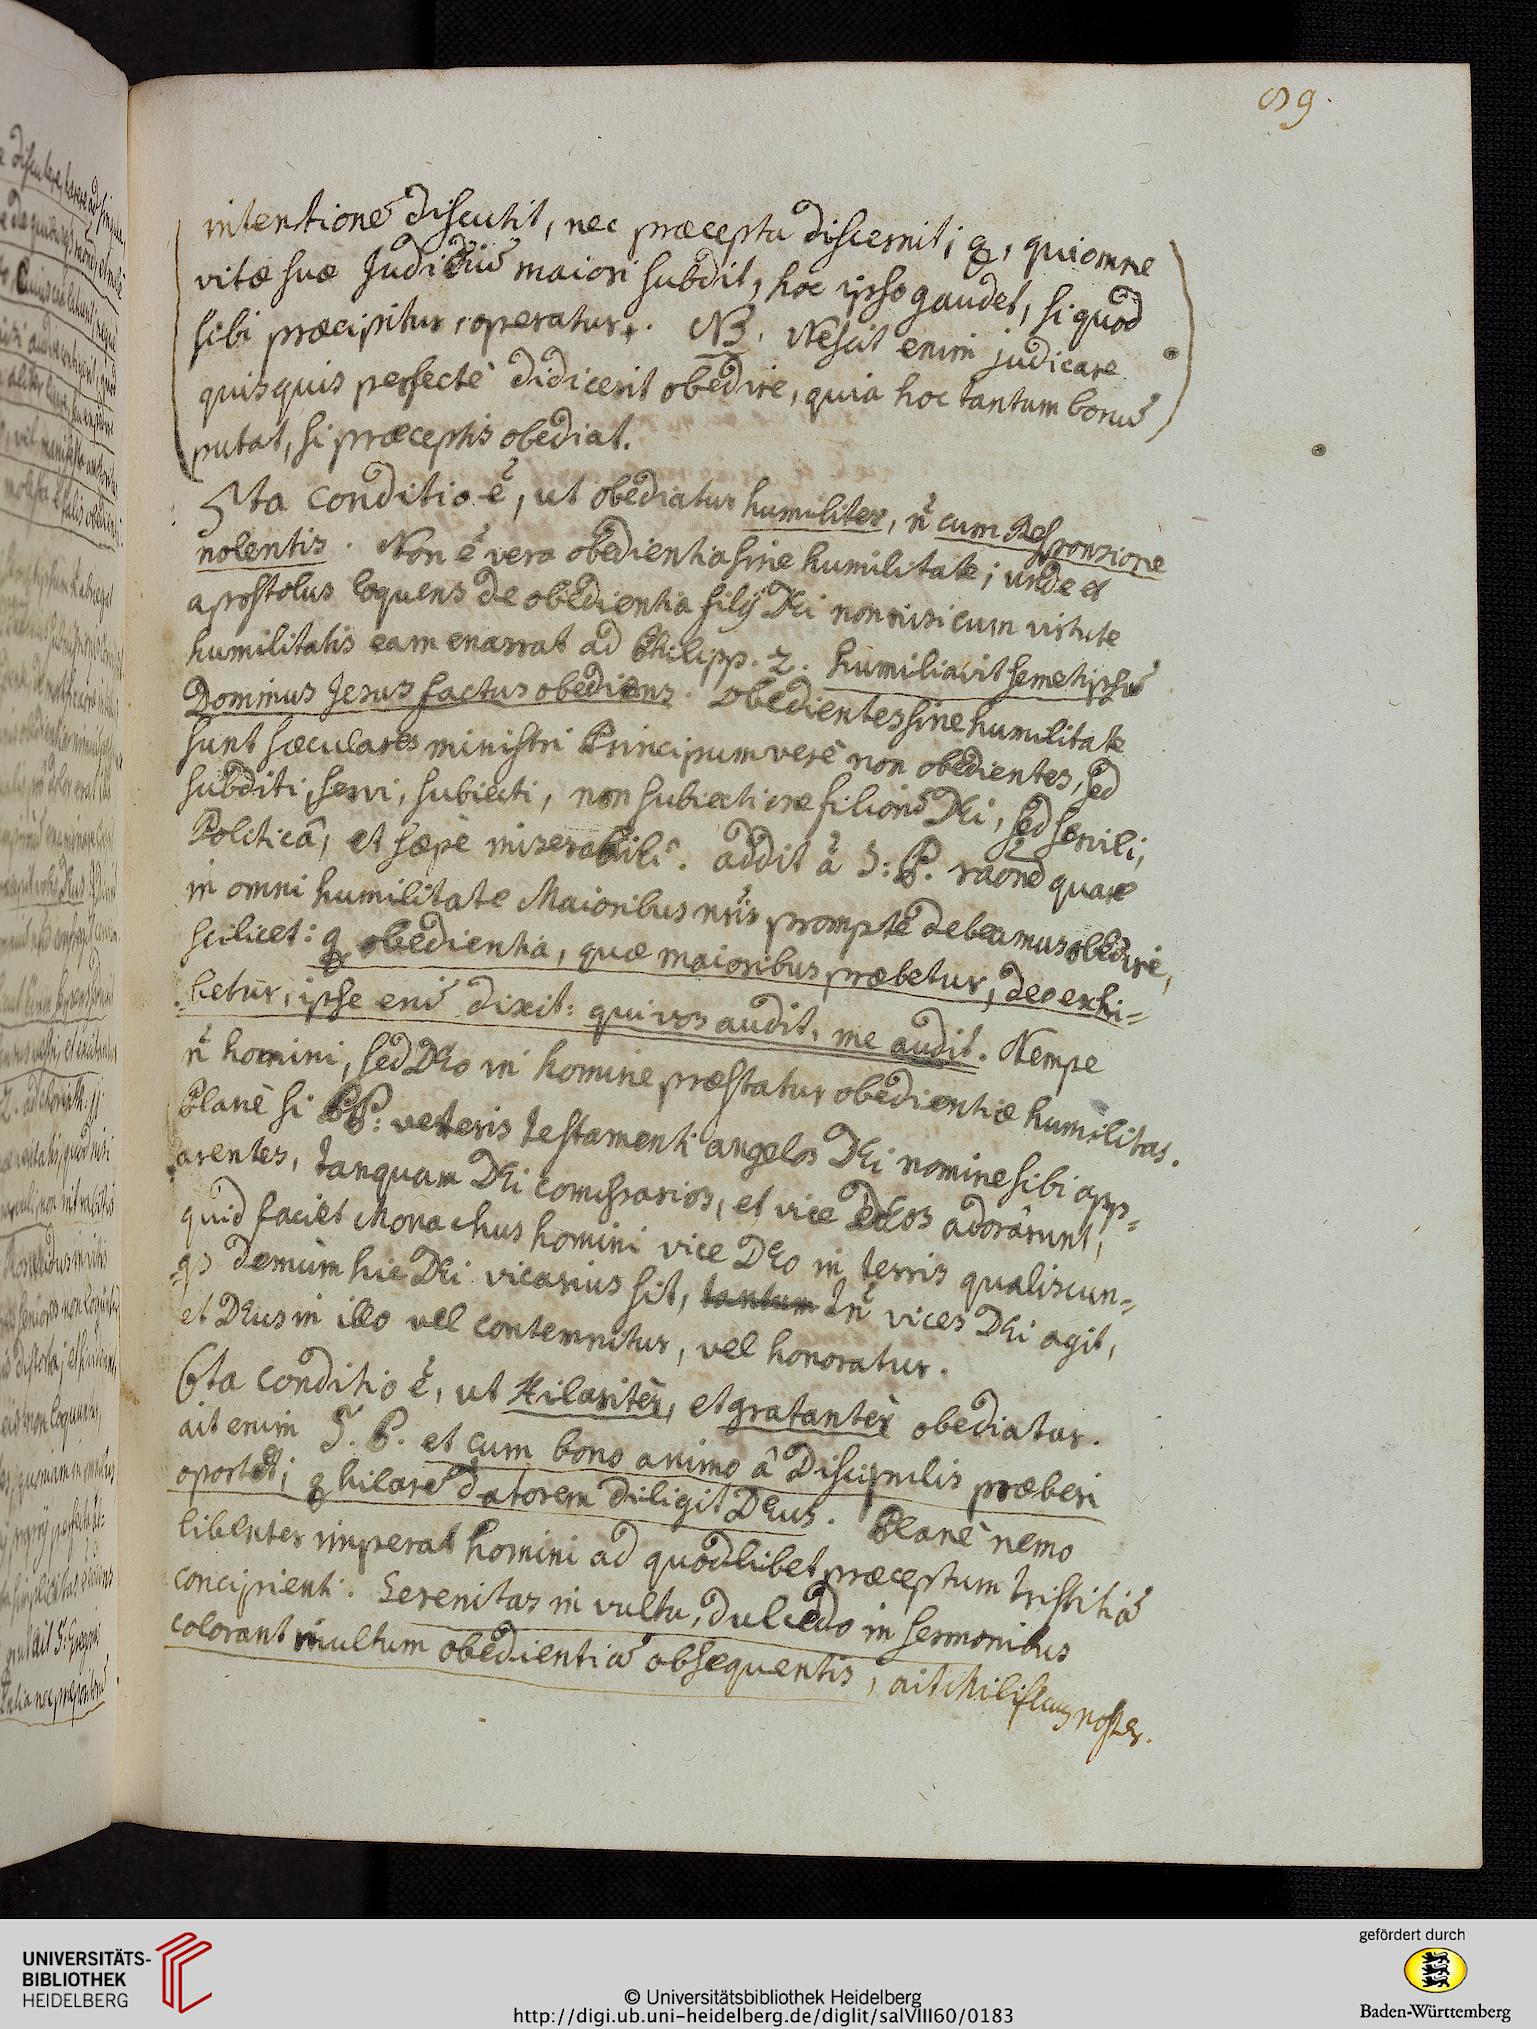 89.
intentionē discutit, nec præcepta discernit; q, qui omne
vitæ suæ Judiciū maiori subdit, hoc ipso gaudet, si quod
sibi præcipitur, operatur. NB. Nescit enim judicare
quisquis perfectè didicerit obedire, quia hoc tantum bonū
putat, si præceptis obediat.
5ta conditio ẽ, ut obediatur humiliter, ñ cum Responsione
nolentis. Non ẽ vera obedientia sine humilitate; unde et
apostolus loquens de obedientia filij Dei non nisi cum virtute
humilitatis eam enarrat ad Philipp. 2. humiliavit semetipsū
Dominus Jesus factus obediens. Obedientes sine humilitate
sunt sæculares ministri Principum verè non obedientes, sed
subditi, servi, subiecti, non subiectione filionū Dei, sed servili,
Politicâ, et sæpè miserabili. addit ã S: P. raonē quare
in omni humilitate Maioribus nr̃is promptè debeamus obedire,
scilicet: q obedientia, quæ maioribus præbetur, deo exhi-
betur, ipse enī dixit: qui vos audit, me audit. Nempe
ñ homini, sed DEo in homine præstatur obedientiæ humilitas.
Planè si PP: veteris testamenti angelos DEi nomine sibi app-
arentes, tanquam DEi comissarios, et vice DEos adorârunt,
quid faciet Monachus homini vice DEo in terris qualiscun-
qs demùm hic DEi vicarius sit, tantum Tñ vices DEi agit,
et DEus in illo vel contemnitur, vel honoratur.
6ta conditio ẽ, ut Hilaritèr, et gratantèr obediatur.
ait enim S. P. et cum bono animo â Discipulis præberi
oportet; q hilarē datorem diligit DEus. Planè nemo
libenter imperat homini ad quodlibet præceptum tristitiā
concipienti. Serenitas in vultu, dulcedo in sermonibus
colorant multum obedientiā obsequentis, ait Mellifluus noster.
UNIVERSITÄTS-
BIBLIOTHEK
HEIDELBERG
© Universitätsbibliothek Heidelberg
http://digi.ub.uni-heidelberg.de/diglit/salVIII60/0183
gefördert durch
Baden-Württemberg